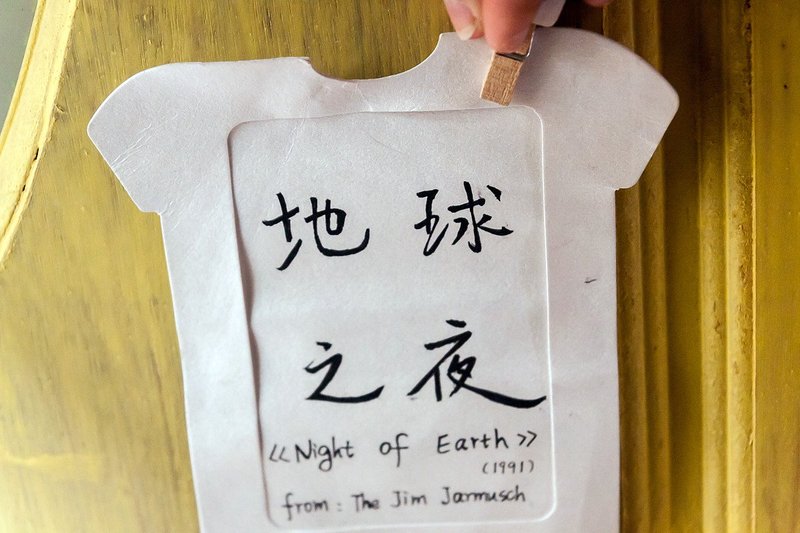 地球
之夜
《Night of Earth》
(1991)
from: The Jim Jarmusch